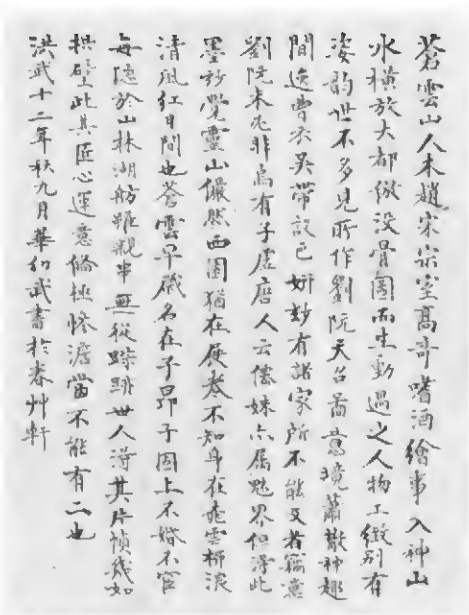 蒼雲山人本趙宋宗室高奇嗜酒繪事入神山
水橫放大都倣没骨圖而生動過之人物工緻別有
姿韵世不多見所作劉阮天台啚意境蕭散神趣
間逸曹衣吳帶設色妍妙有諸家所不能及者竊意
劉阮未必非烏有子虛唐人云儒姝亦属魅界但得此
墨妙覺靈山儼然西園猶在展卷不知身在亮雲栁浪
清風紅日間也蒼雲早歲名在子昂子固上不婚不宦
每隱於山林湖舫雖親串無從踪跡世人得其片幀幾如
拱璧此其匠心運意脩極惨澹當不能有二也
洪武十二年秋九月華幼武書於春艸軒